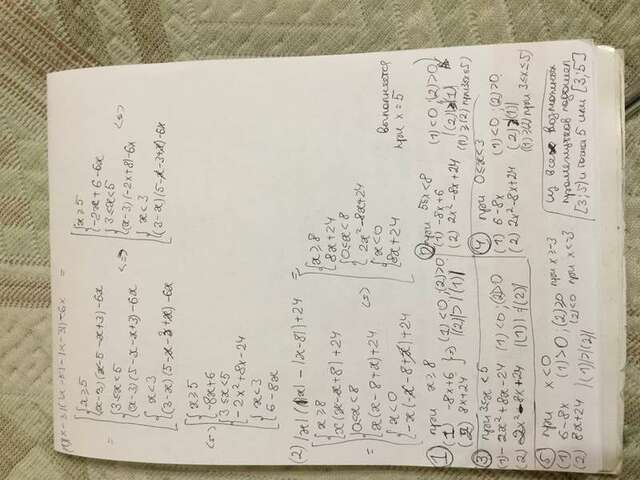 (1) |x-3|(|x-5|-|x-3|)-6x =
= [ { x≥5
(x-3)(x-5-x+3)-6x
{ 3≤x<5
(x-3)(5-x-x+3)-6x <=>
{ x<3
(3-x)(5-x-3+x)-6x
[ { x≥5
-2x+6-6x
{ 3≤x<5
(x-3)(-2x+8)-6x <=>
{ x<3
(3-x)(5-x-3+x)-6x
<=> [ { x≥5
-8x+6
{ 3≤x<5
-2x²+8x-24
{ x<3
6-8x
(2) |x|(|x|-|x-8|)+24 =
= [ { x≥8
x(x-x+8)+24
{ 0≤x<8
x(x-8+x)+24 <=>
{ x<0
-x(-x-8+x)+24
[ { x≥8
8x+24
{ 0≤x<8
2x²-8x+24
{ x<0
8x+24
выполняется
при x=5
① при x≥8
(1) -8x+6
(2) 8x+24 } => (1)<0; (2)>0
|(2)|>|(1)|
② при 5≤x<8
(1) -8x+6 (1)<0; (2)>0
(2) 2x²-8x+24 |(2)|≥|(1)|
(|1|≥(2) при x=5)
③ при 3≤x<5
(1) -2x²+8x-24 (1)<0; (2)>0
(2) 2x²-8x+24 |(1)|=|(2)|
④ при 0≤x<3
(1) 6-8x (1)<0; (2)>0
(2) 2x²-8x+24 (2)≥|(1)|
(|1|≥(2) при 3≤x≤5)
⑤ при x<0
(1) 6-8x (1)>0; (2)≥0 при x≥-3
(2) 8x+24 |(1)|>|(2)| (2)<0 при x<-3
из всех возможных
промежутков подошел
[3;5) и точка 5 или [3;5]